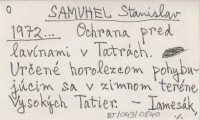 0
SAMUHEL Stanislav
1972... Ochrana pred
lavínami v Tatrách.
Určené horolezcom pohybu-
júcim sa v zimnom teréne
Vysokých Tatier. - Iamesák,
BT/043/0840